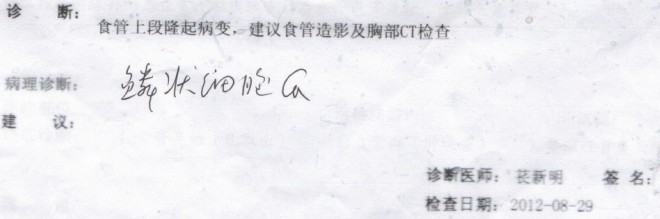 诊 断：
食管上段隆起病变，建议食管造影及胸部CT检查
病理诊断： 鳞状细胞Ca
建 议：
诊断医师： 苌新明 签 名：
检查日期： 2012-08-29